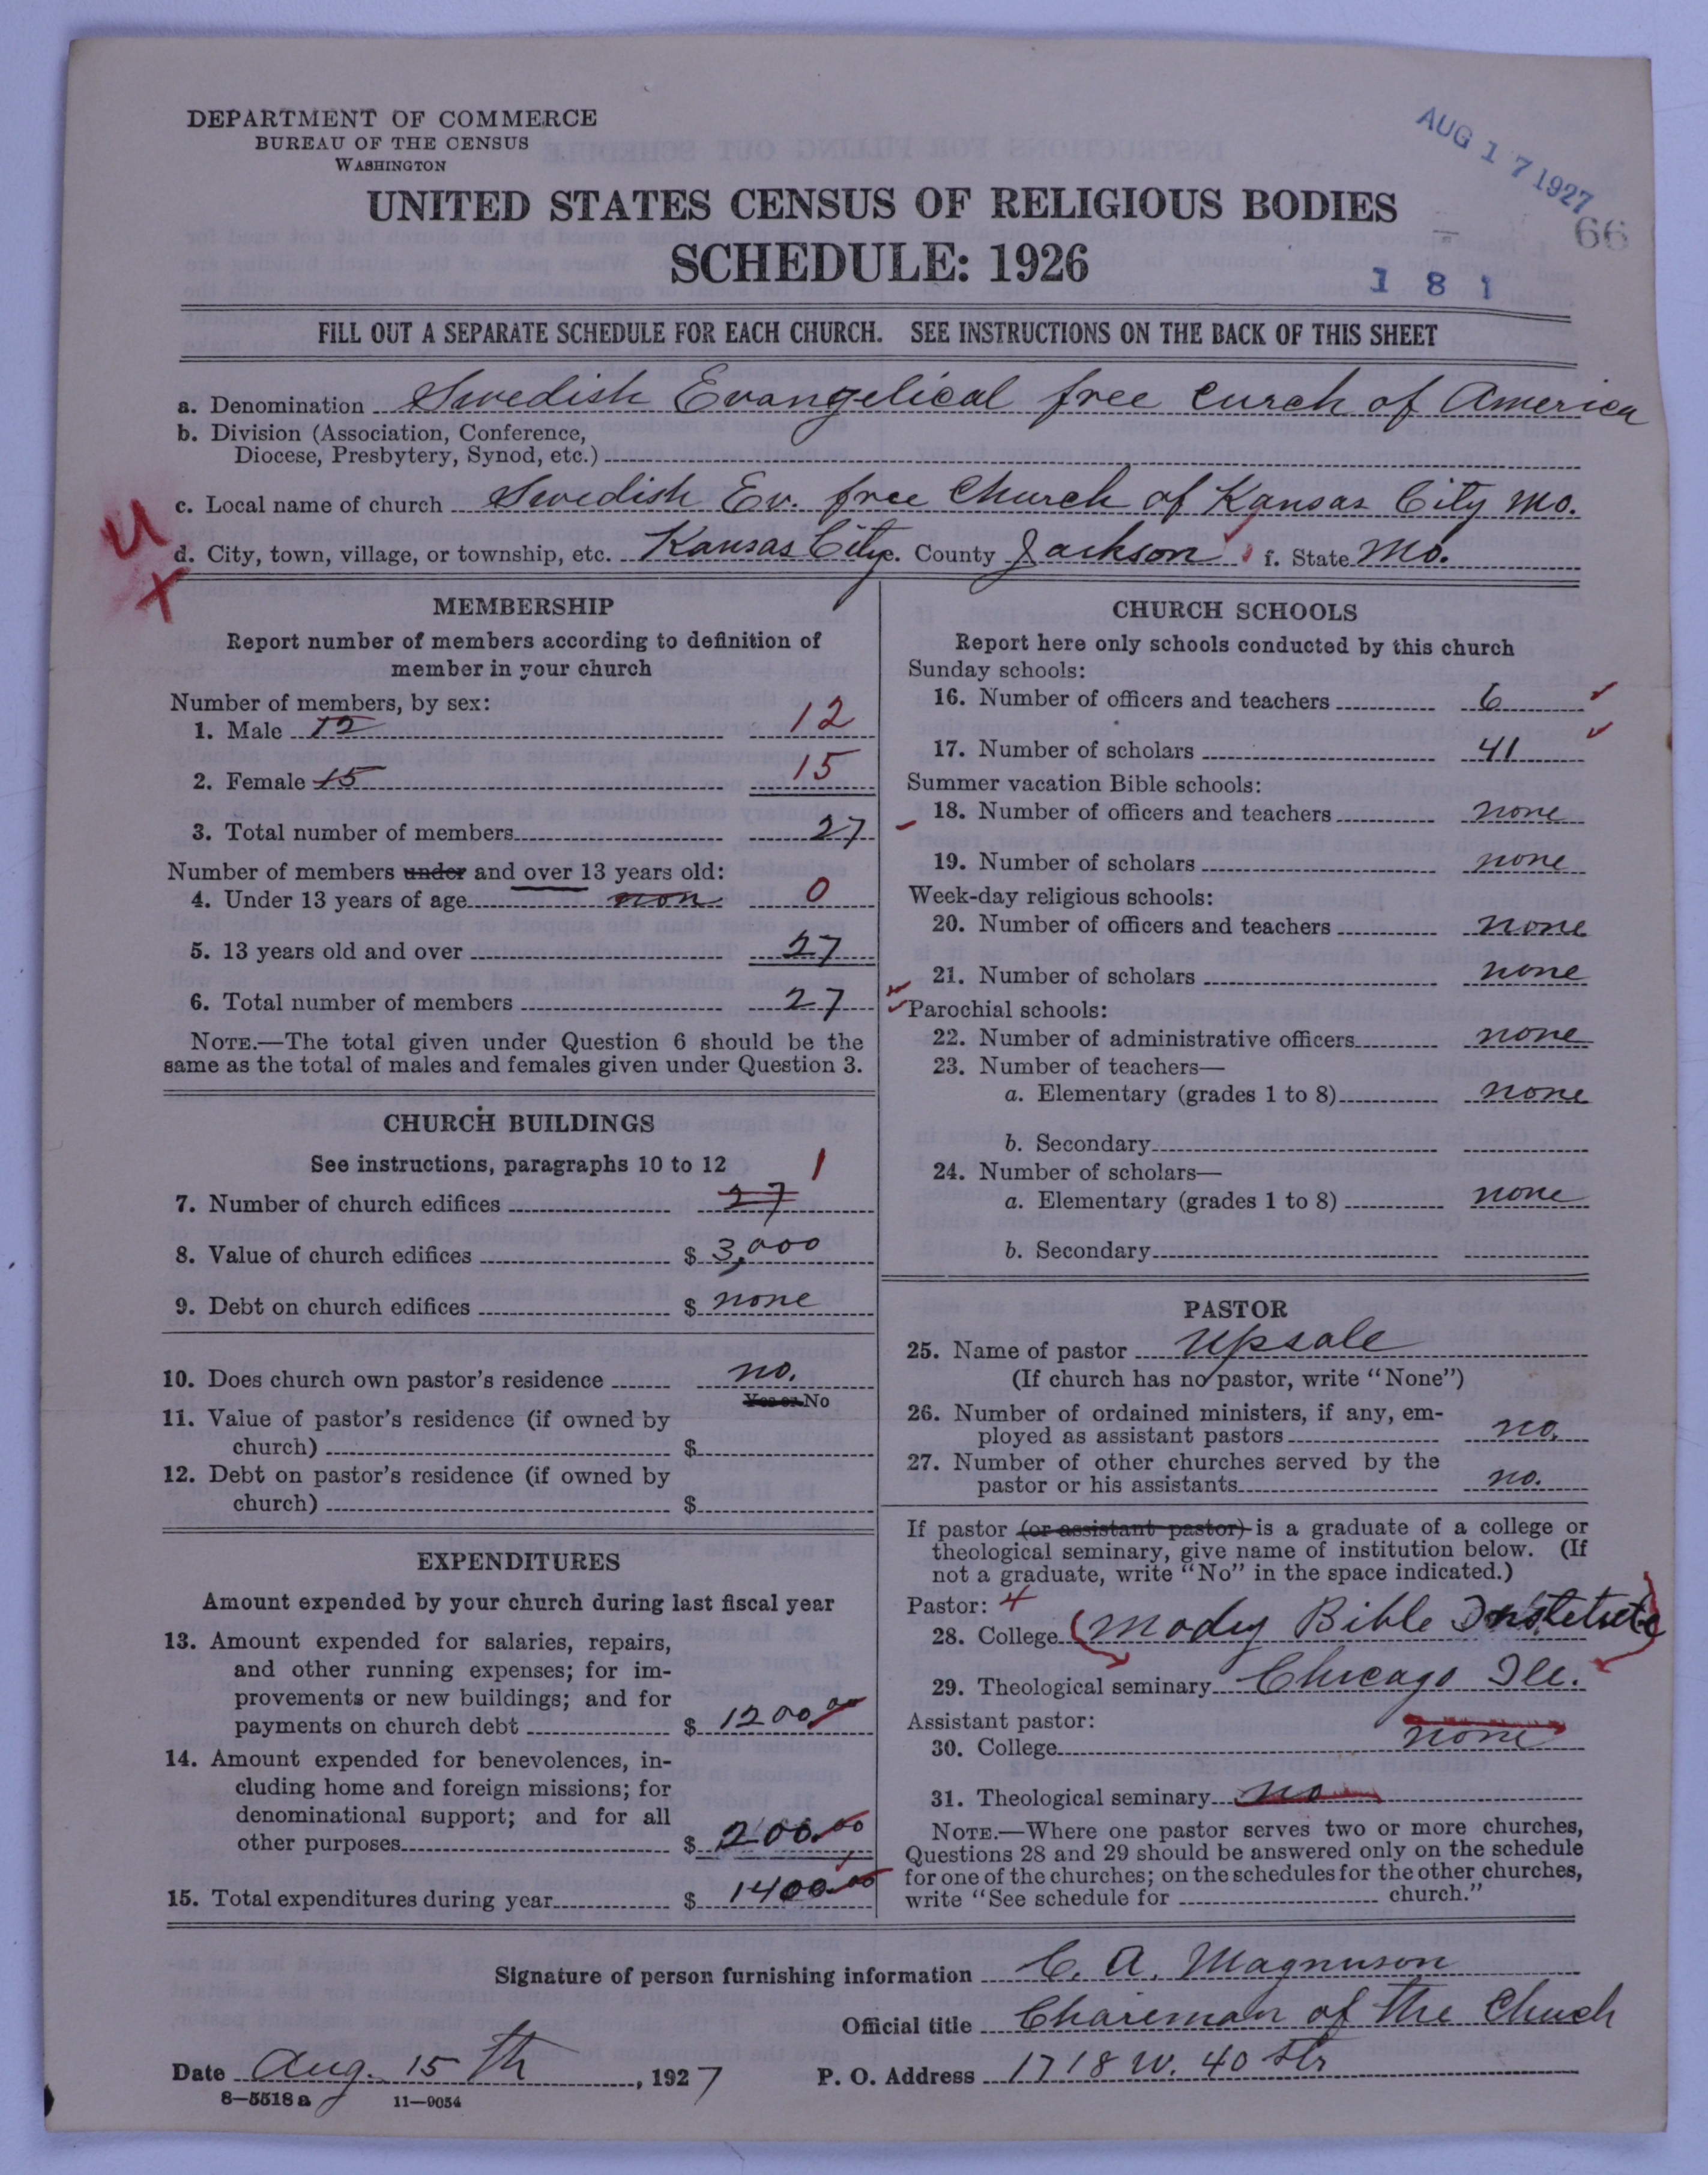 DEPARTMENT OF COMMERCE
BUREAU OF THE CENSUS
WASHINGTON
AUG 17 1927
66
UNITED STATES CENSUS OF RELIGIOUS BODIES
SCHEDULE: 1926
1 8 1
FILL OUT A SEPARATE SCHEDULE FOR EACH CHURCH. SEE INSTRUCTIONS ON THE BACK OF THIS SHEET
a. Denomination Swedish Evangelical free Curch of America
b. Division (Association, Conference,
Diocese, Presbytery, Synod, etc.)
c. Local name of church Swedish Ev. free Church of Kansas City Mo.
d. City, town, village, or township, etc. Kansas City e. County Jackson f. State Mo.
U
X
MEMBERSHIP
Report number of members according to definition of
member in your church
Number of members, by sex:
1. Male 12 12
2. Female 15 15
3. Total number of members 27
Number of members under and over 13 years old:
4. Under 13 years of age non 0
5. 13 years old and over 27
6. Total number of members 27
NOTE.—The total given under Question 6 should be the
same as the total of males and females given under Question 3.
CHURCH BUILDINGS
See instructions, paragraphs 10 to 12 1
7. Number of church edifices 27
8. Value of church edifices $ 3,000
9. Debt on church edifices $ none
10. Does church own pastor's residence no.
Yes or No
11. Value of pastor's residence (if owned by
church) $
12. Debt on pastor's residence (if owned by
church) $
EXPENDITURES
Amount expended by your church during last fiscal year
13. Amount expended for salaries, repairs,
and other running expenses; for im-
provements or new buildings; and for
payments on church debt $ 1200.00
14. Amount expended for benevolences, in-
cluding home and foreign missions; for
denominational support; and for all
other purposes $ 200.00
15. Total expenditures during year $ 1400.00
CHURCH SCHOOLS
Report here only schools conducted by this church
Sunday schools:
16. Number of officers and teachers 6
17. Number of scholars 41
Summer vacation Bible schools:
18. Number of officers and teachers none
19. Number of scholars none
Week-day religious schools:
20. Number of officers and teachers none
21. Number of scholars none
Parochial schools:
22. Number of administrative officers none
23. Number of teachers—
a. Elementary (grades 1 to 8) none
b. Secondary
24. Number of scholars—
a. Elementary (grades 1 to 8) none
b. Secondary
PASTOR
25. Name of pastor Upsale
(If church has no pastor, write "None")
26. Number of ordained ministers, if any, em-
ployed as assistant pastors no.
27. Number of other churches served by the
pastor or his assistants no.
If pastor (or assistant pastor) is a graduate of a college or
theological seminary, give name of institution below. (If
not a graduate, write "No" in the space indicated.)
Pastor: 4
28. College Mody Bible Institute
29. Theological seminary Chicago Ill.
Assistant pastor:
30. College none
31. Theological seminary no
NOTE.—Where one pastor serves two or more churches,
Questions 28 and 29 should be answered only on the schedule
for one of the churches; on the schedules for the other churches,
write "See schedule for church."
Signature of person furnishing information C. A. Magnuson
Official title Chairman of the Chuch
Date Aug. 15 th, 1927 P. O. Address 1718 W. 40 Str
8—5518 a 11—9054